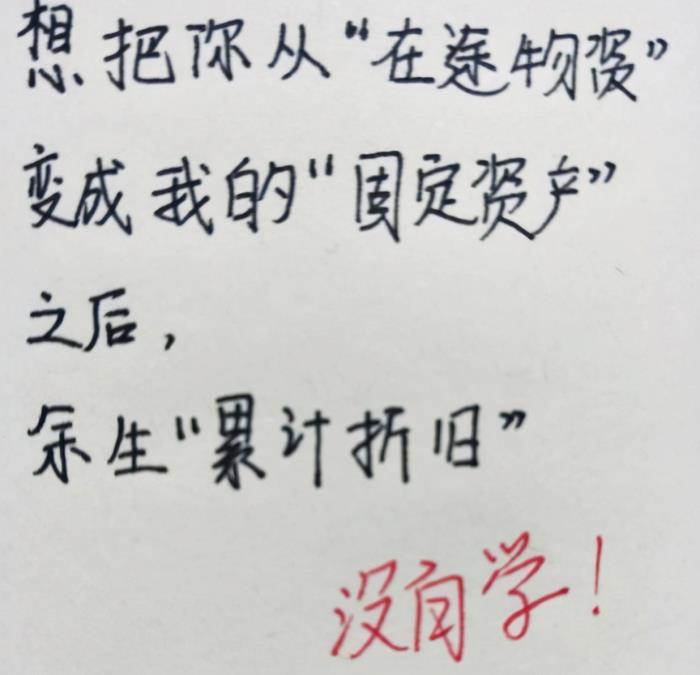 想把你从“在途物资”
变成我的“固定资产”
之后，
余生“累计折旧”
没自学！